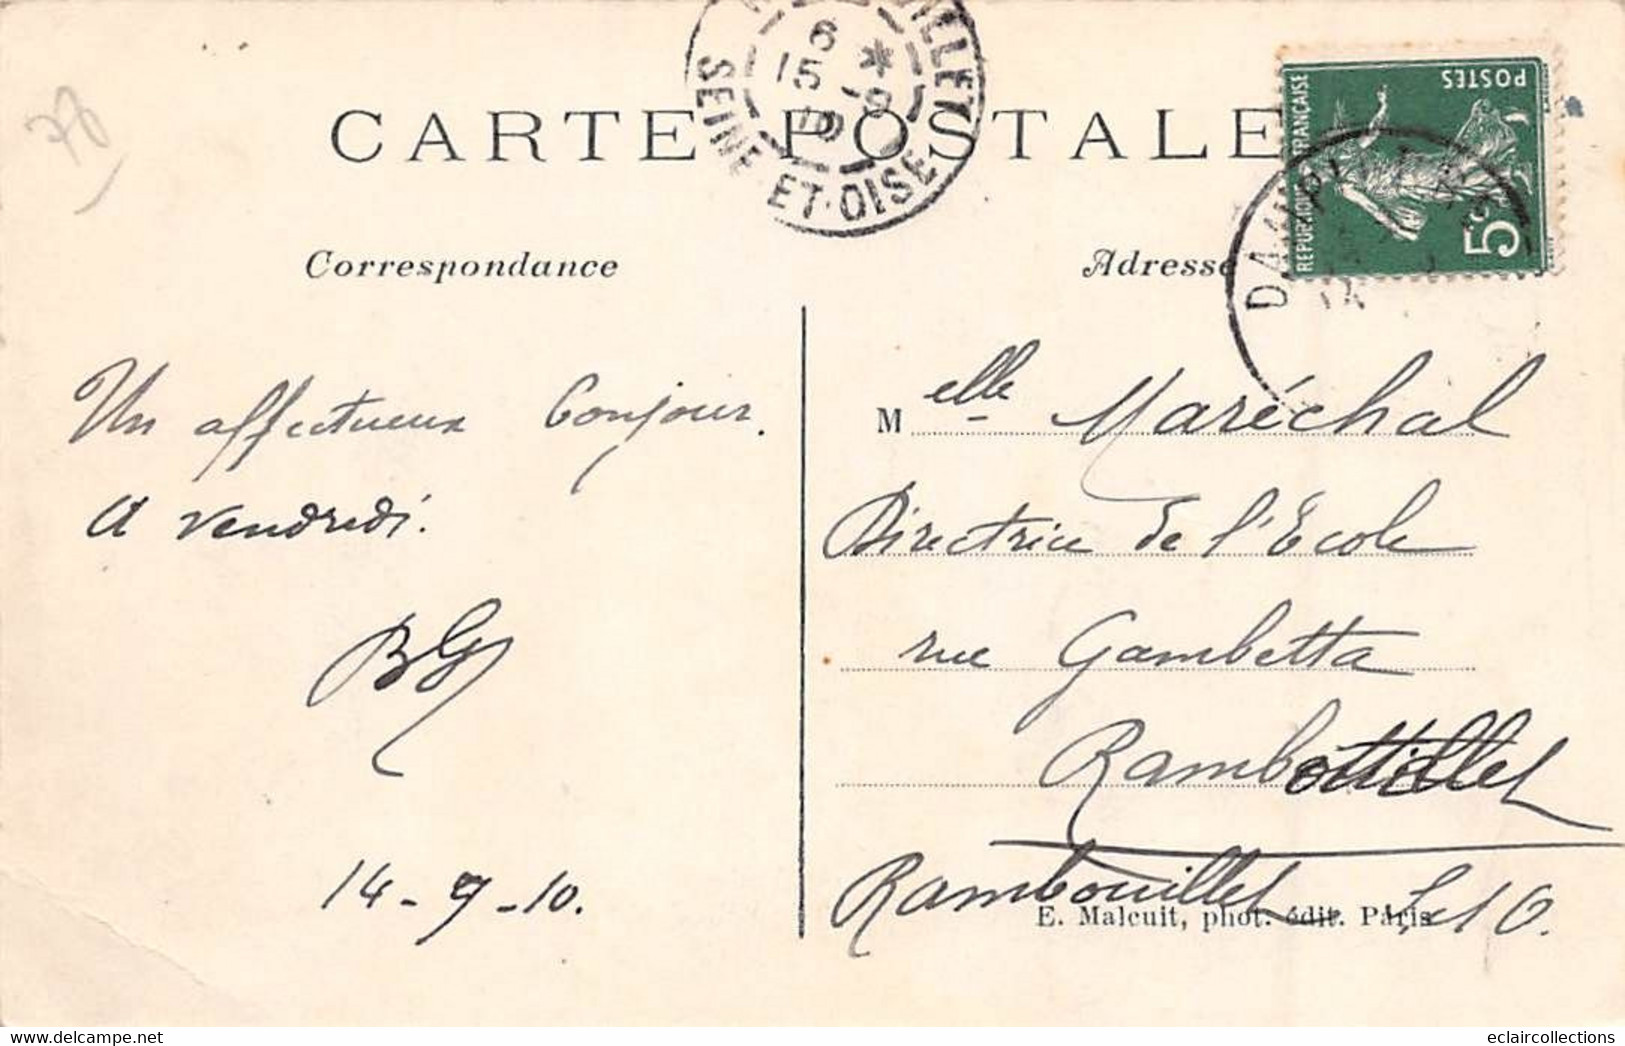 78
CARTE POSTALE
6
15 -9
10
SEINE-ET-OISE
RÉPUBLIQUE FRANÇAISE
POSTES
5c
Correspondance
Adresse
Un affectueux bonjour.
A vendredi.
BG
14-9-10.
Melle Maréchal
Directrice de l'Ecole
rue Gambetta
Rambouillet
Rambouillet S et O.
E. Malcuit, phot. édit. Paris
www.delcampe.net
eclaircollections